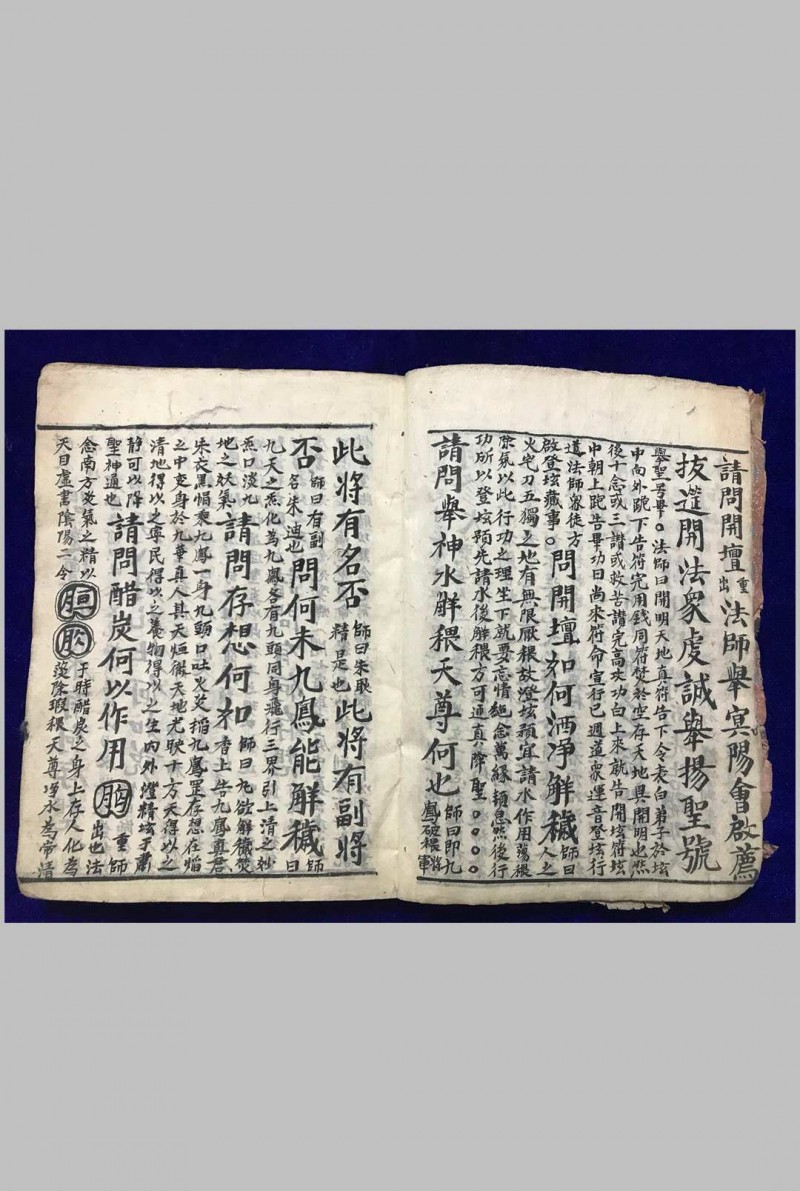 請問開壇重出法師舉冥陽會啟薦
拔筵開法眾虔誠舉揚聖號
舉聖号畢。法師曰開明天地真符告下令表白弟子於坛
中向外跪下告符完用錢同符焚於空存天地真開明也然
後十念或三讚或救苦讚完高功白上來就告開坛符坛
中朝上跪告畢功曰尚來符命宣行已週道眾運音登坛行
道法師眾徒方
啟登坛藏事。問開壇如何洒淨解穢師曰人之
火宅刀五獨之地有無限厭穢故澄坛預宜請水作用蕩穢
除氛以此行功之理生下就要忘情絕念萬緣頓息然後行
功所以登坛預先請水後解穢方可通真降聖。。。。
請問舉神水解穢天尊何也師曰即九鳳破穢將軍
此將有名否師曰朱耿精是也此將有副將
否師曰有副名朱迪也問何朱九鳳能解穢師曰
九天之炁化為九鳳各有九頭同身飛行三界引上清之玅
炁口淡九
地之妖氣請問存想何如師曰凡欲解穢焚香上告九鳳真君
朱衣黑幘乘九鳳一身九頭口吐火炎焰九鳳罡存想在焰
之中变身於九華真人其天烜徹天地光映十方天得以之
清地得以之寧民得以之養物得以之生內外燈精坛于肅
静可以降
聖神通也請問醋炭何以作用重出也師法
念南方炎氣之精以
天目虛書陰陽二令于時醋炭之身上存人化為
淡除瑕穢天尊淨水為帝清